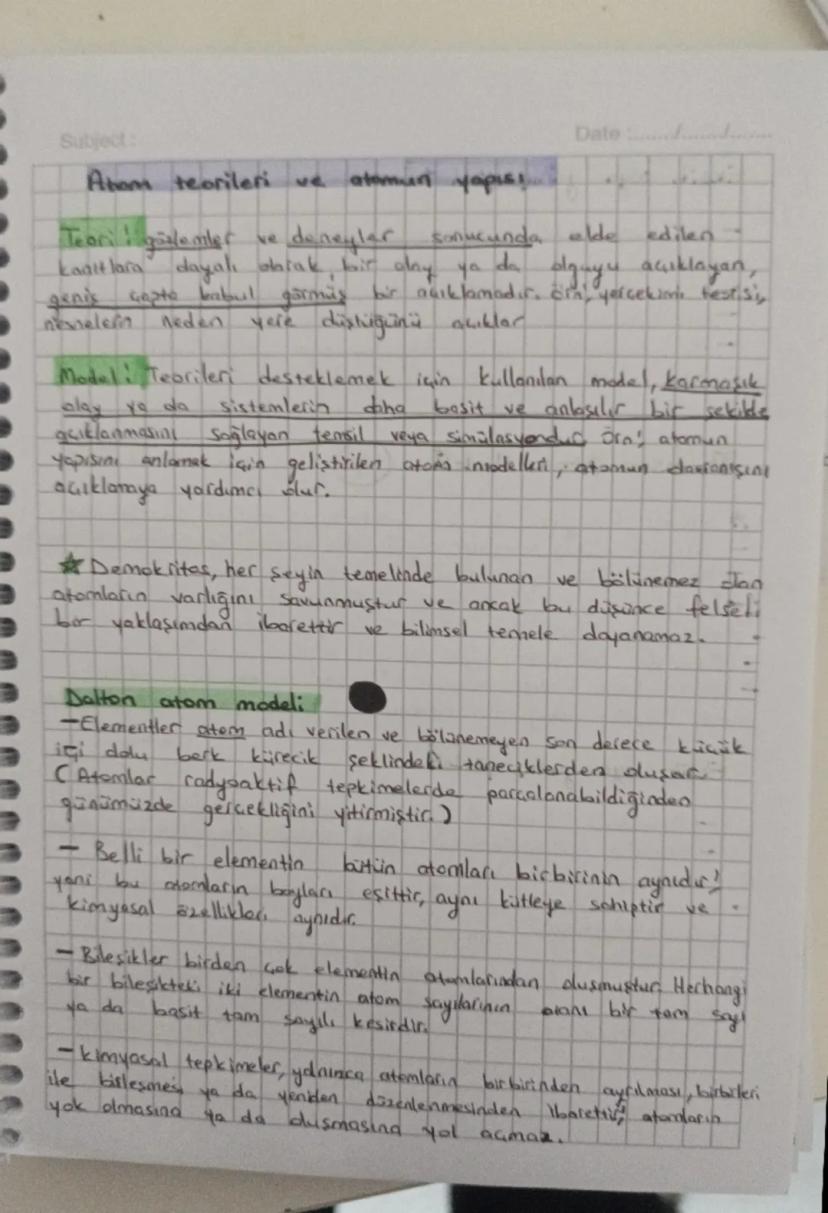 Subject:
Date :....../....../......
Atom teorileri ve atomun yapısı
Teori: gözlemler ve deneyler sonucunda elde edilen
kanıtlara dayalı olarak, bir olay ya da olguyu açıklayan,
geniş çapta kabul görmüş bir açıklamadır. Örn; yerçekimi teorisi,
nesnelerin neden yere düştüğünü açıklar
Model: Teorileri desteklemek için kullanılan model, karmaşık
olay ya da sistemlerin daha basit ve anlaşılır bir şekilde
açıklanmasını sağlayan temsil veya simülasyondur. Örn; atomun
yapısını anlamak için geliştirilen atom modelleri, atomun davranışını
açıklamaya yardımcı olur.
☆ Demokritos, her şeyin temelinde bulunan ve bölünemez olan
atomların varlığını savunmuştur ve ancak bu düşünce felsefi
bir yaklaşımdan ibarettir ve bilimsel temele dayanamaz.
Dalton atom modeli
- Elementler atom adı verilen ve bölünemeyen son derece küçük
içi dolu berk kürecik şeklindeki taneciklerden oluşur
(Atomlar radyoaktif tepkimelerde parçalanabildiğinden
günümüzde gerçekliğini yitirmiştir.)
- Belli bir elementin bütün atomları birbirinin aynıdır!
yani bu atomların boyları eşittir, aynı kütleye sahiptir ve
kimyasal özellikleri aynıdır.
- Bileşikler birden çok elementin atomlarından oluşmuştur. Herhangi
bir bileşikteki iki elementin atom sayılarının oranı bir tam sayı
ya da basit tam sayılı kesirdir.
- Kimyasal tepkimeler, yalnızca atomların birbirinden ayrılması, birbirleri
ile birleşmesi ya da yeniden düzenlenmesinden ibarettir; atomların
yok olmasına ya da oluşmasına yol açmaz.